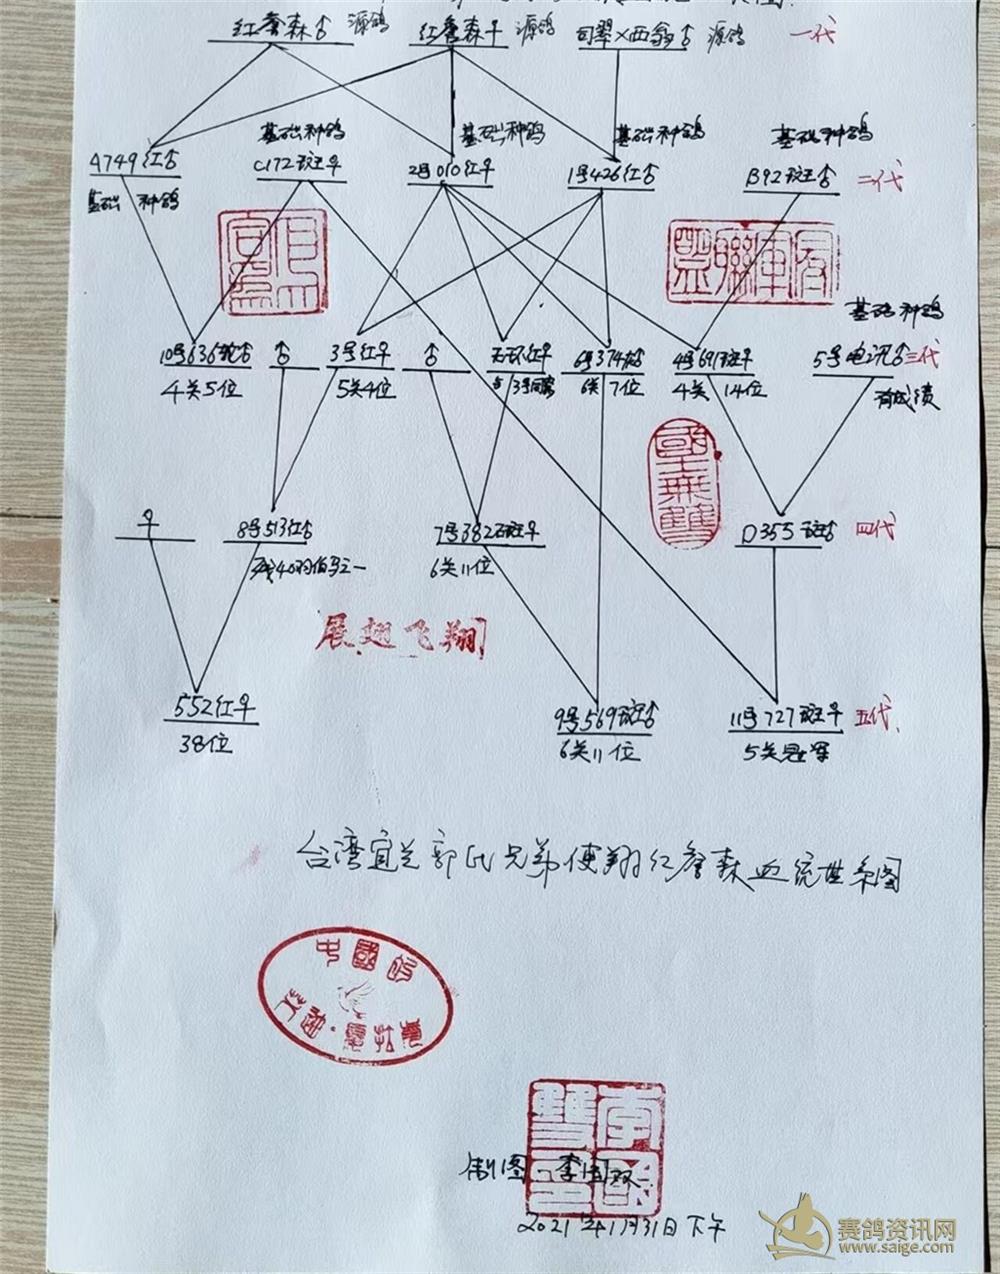 红詹森♂ 源鸽 红詹森♀ 源鸽 司翠×西翁♂ 源鸽 一代
基础种鸽 基础种鸽 基础种鸽 基础种鸽
A749红♂ C172斑♀ 2号010红♀ 1号426红♂ B92斑♂ 二代
基础 种鸽
基础种鸽
10号636 ♂ ♂ 3号红♀ ♂ 无环红♀ 6号374 ♂ 4号691斑♀ 5号电讯♂ 三代
4关5位 5关4位 与3号同窝 6关7位 4关14位 有成绩
♀ 8号513红♂ 7号382石斑♀ D355斑♂ 四代
6关11位
展翅飞翔
552红♀ 9号569斑♂ 11号727斑♀ 五代
38位 6关11位 5关
台湾宜兰郭氏兄弟便翔红詹森血统世系图
中國
國士無雙
制图 李国双
2021年1月31日下午
赛鸽资讯网
www.saige.com